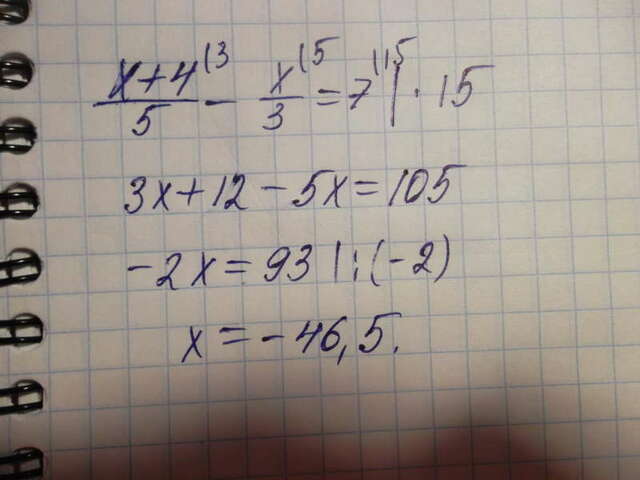 x+4⁽³/5 - x⁽⁵/3 = 7⁽¹⁵ | · 15
3x+12-5x=105
-2x=93 |:(-2)
x=-46,5.